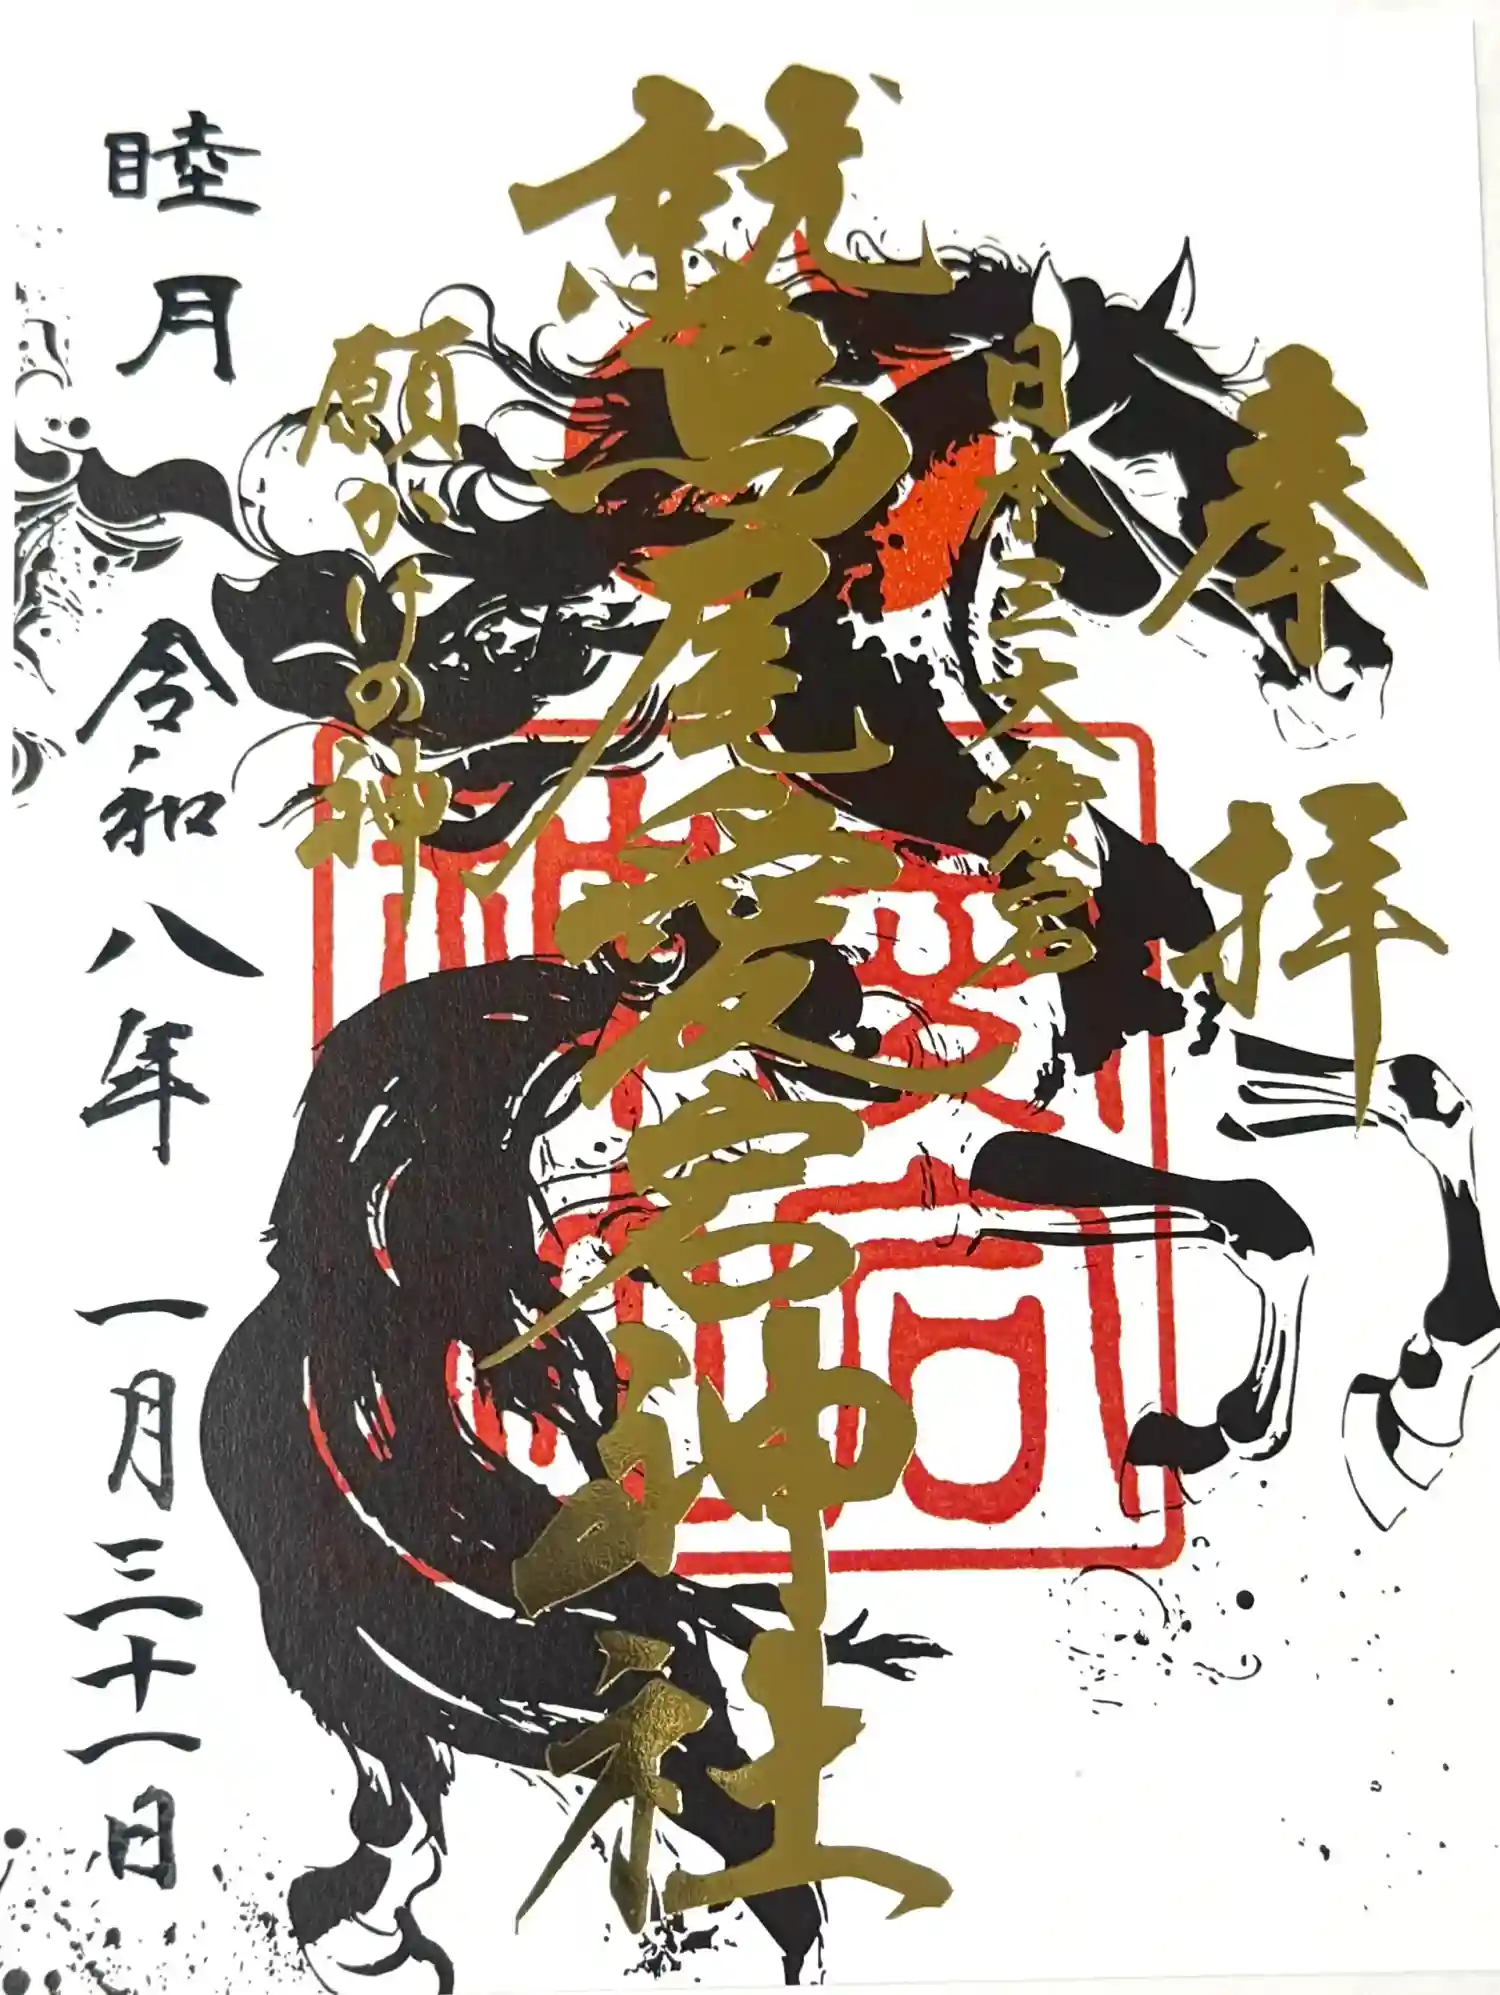 奉拝
日本三大愛宕
鷲尾愛宕神社
願かけの神
睦月 令和八年一月三十一日
愛宕
神社